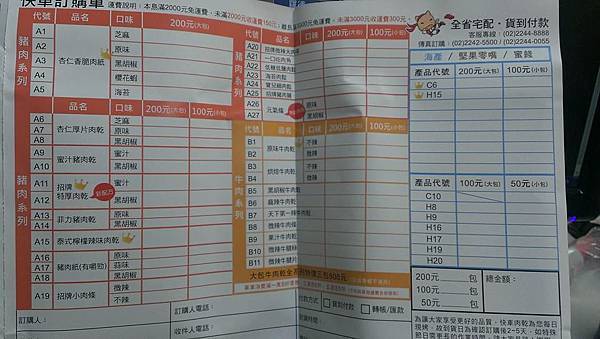 快車訂購單
運費說明：本島滿2000元免運費，未滿2000元收運費150元，離島滿3000元免運費，未滿3000元收運費300元。
全省宅配・貨到付款
客服專線：(02)2244-8888
傳真訂購：(02)2242-5500 / (02)2244-0055
豬肉系列
代號 品名 口味 200元(大包)
A1 芝麻
A2 原味
A3 杏仁香脆肉紙 黑胡椒
A4 櫻花蝦
A5 海苔
代號 品名 口味 200元(大包) 100元(小包)
A6 芝麻
A7 杏仁厚片肉乾 原味
A8 黑胡椒
A9 蜜汁豬肉乾 蜜汁
A10 黑胡椒
A11 招牌 蜜汁
A12 特厚肉乾 黑胡椒
新配方
A13 菲力豬肉乾 原味
A14 黑胡椒
A15 泰式檸檬辣味肉乾
A16 原味
A17 豬肉紙(有嚼勁) 蒜味
A18 黑胡椒
A19 招牌小肉條 微辣
不辣
豬肉系列
代號 品名 口味 200元(大包) 100元(小包)
A20
A21 一口Q肉角
A22
A23 海苔肉鬆
A24 寶兒細肉鬆
A25 招牌豬肉脯
A26 元氣條 原味
A27 黑胡椒
牛肉系列
代號 品名 口味 200元(大包) 100元(小包)
B1 原味牛肉乾 不辣
B2 微辣
B3 烘焙牛肉乾 不辣
B4 微辣
B5 黑胡椒牛肉乾
B6 麻辣牛肉乾
B7 天下第一辣牛肉乾
B8 微辣牛肉條
B9 果汁牛肉乾
B10 微辣牛腱
B11 微辣牛腱
大包牛肉乾全系列特價三包500元
海產 / 堅果零嘴 / 蜜餞
產品代號 200元(大包) 100元(小包)
C6
H15
產品代號 100元(大包) 50元(小包)
C10
H8
H9
H16
H17
H19
H20
200元 包
100元 包
50元 包
總金額：
訂購人： 訂購人電話：
收件人電話：
付款方式 □貨到付款 □轉帳/匯款
到貨時間：
為讓大家享受更好的品質，快車肉乾為您每日
現烤，故到貨日為確認訂購後2~5天，如特殊